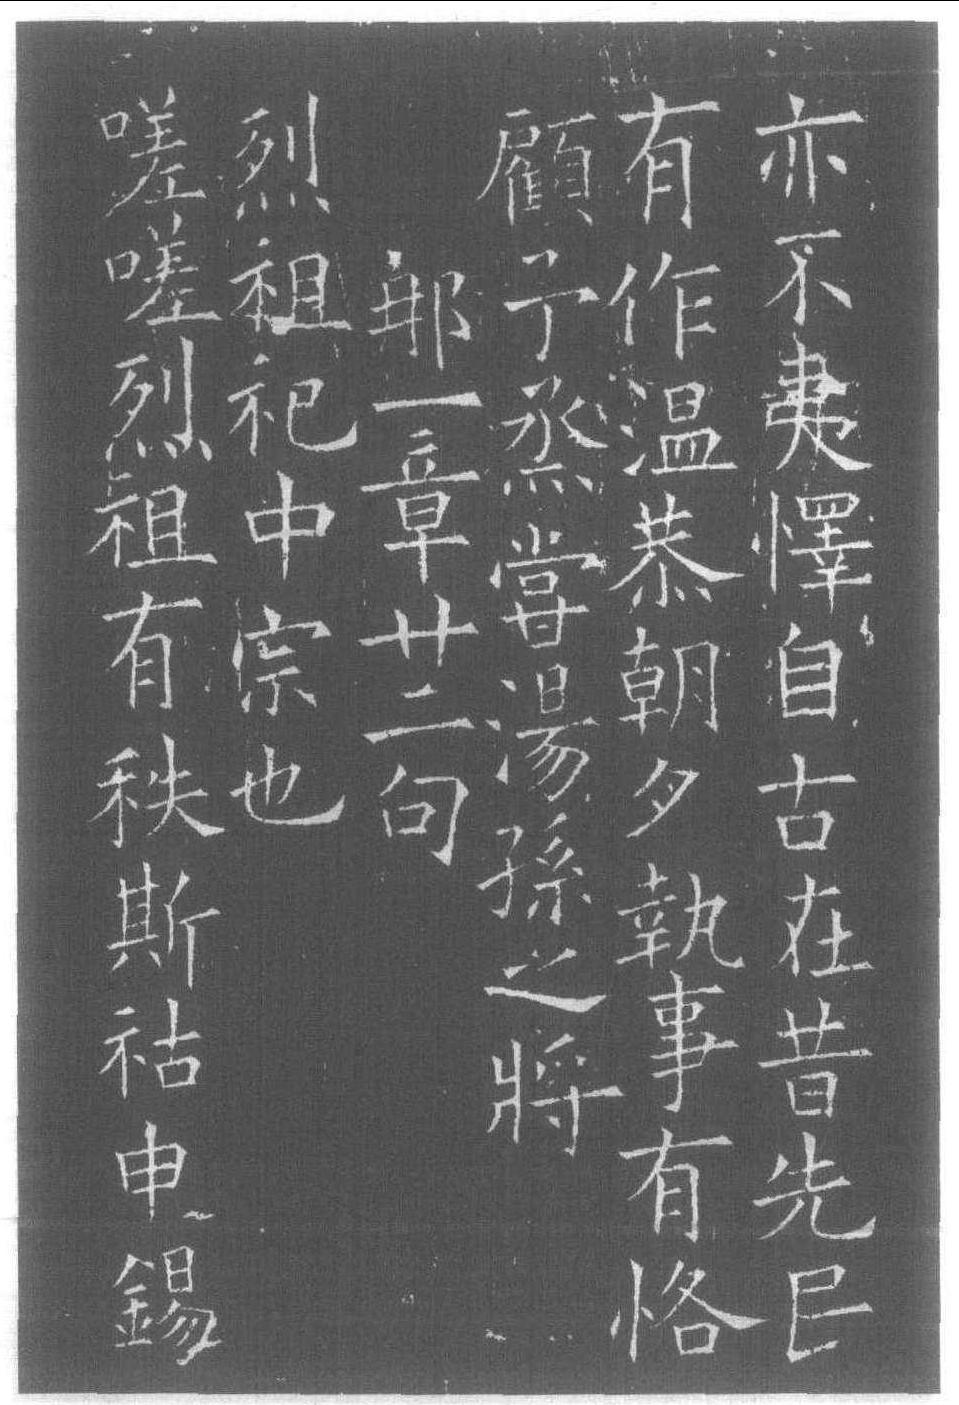 亦不夷懌自古在昔先民
有作温恭朝夕執事有恪
顧予烝甞湯孫之將
那一章廿二句
烈祖祀中宗也
嗟嗟烈祖有秩斯祜申錫